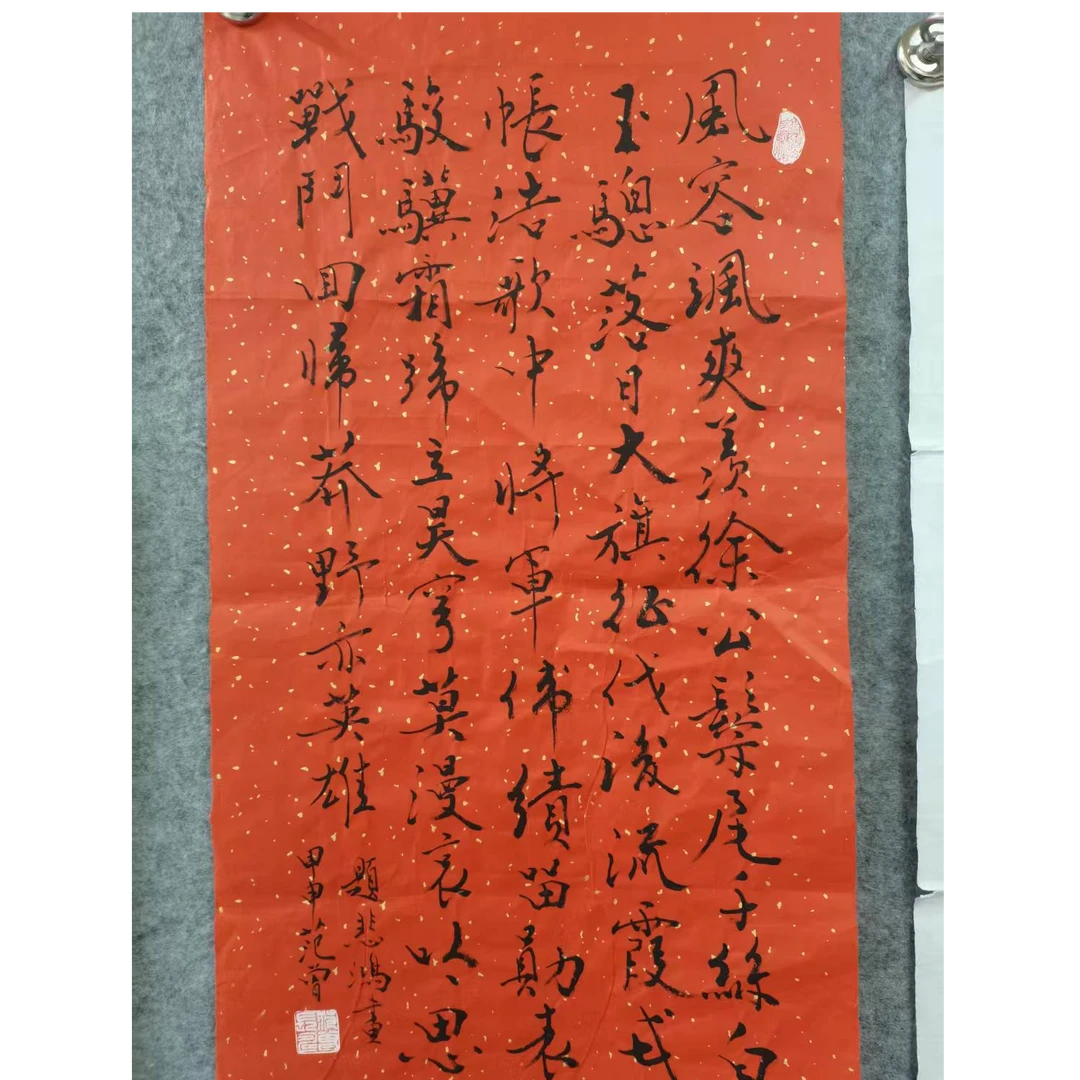 風容颯爽羨徐公鬃尾千絲白
玉驄落日大旗征伐後流霞戎
帳浩歌中將軍偉績留勛表
駿驥霜蹄立昊穹莫漫哀吟思
戰鬥回歸莽野亦英雄
題悲鴻畫
甲申范曾